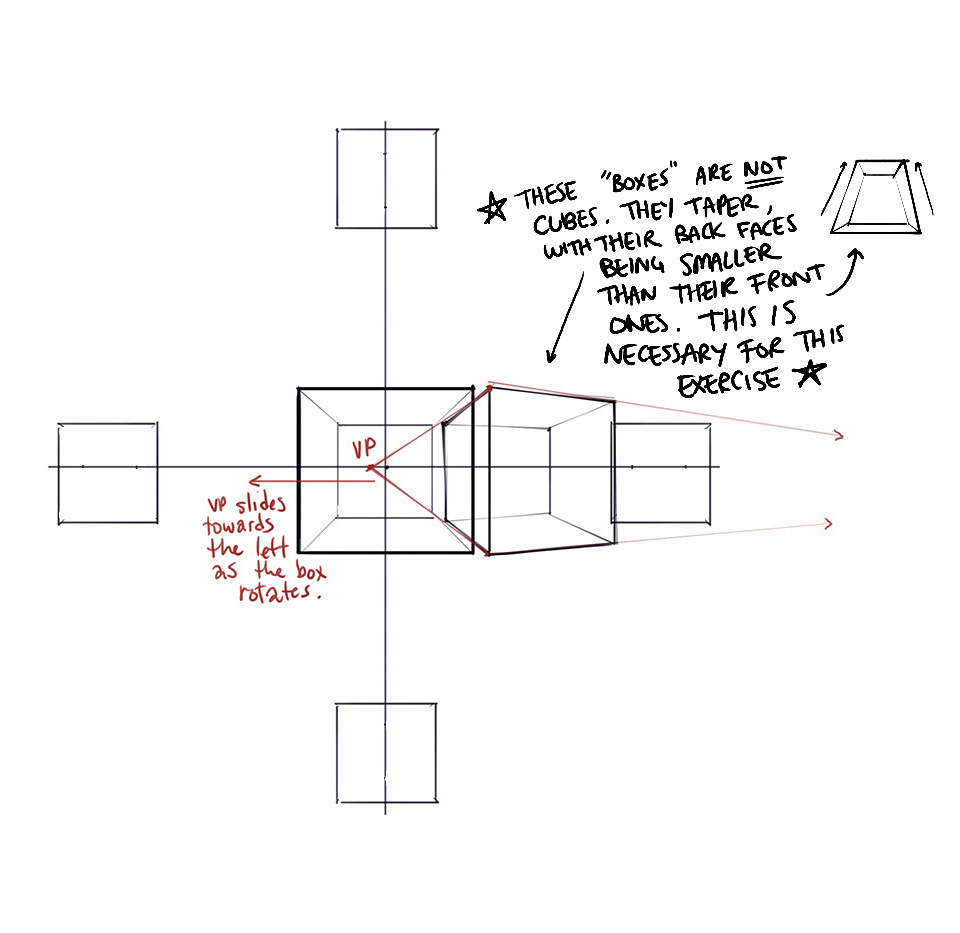 ☆ THESE "BOXES" ARE NOT
CUBES. THEY TAPER,
WITH THEIR BACK FACES
BEING SMALLER
THAN THEIR FRONT
ONES. THIS IS
NECESSARY FOR THIS
EXERCISE ☆
VP
VP slides
towards
the left
as the box
rotates.